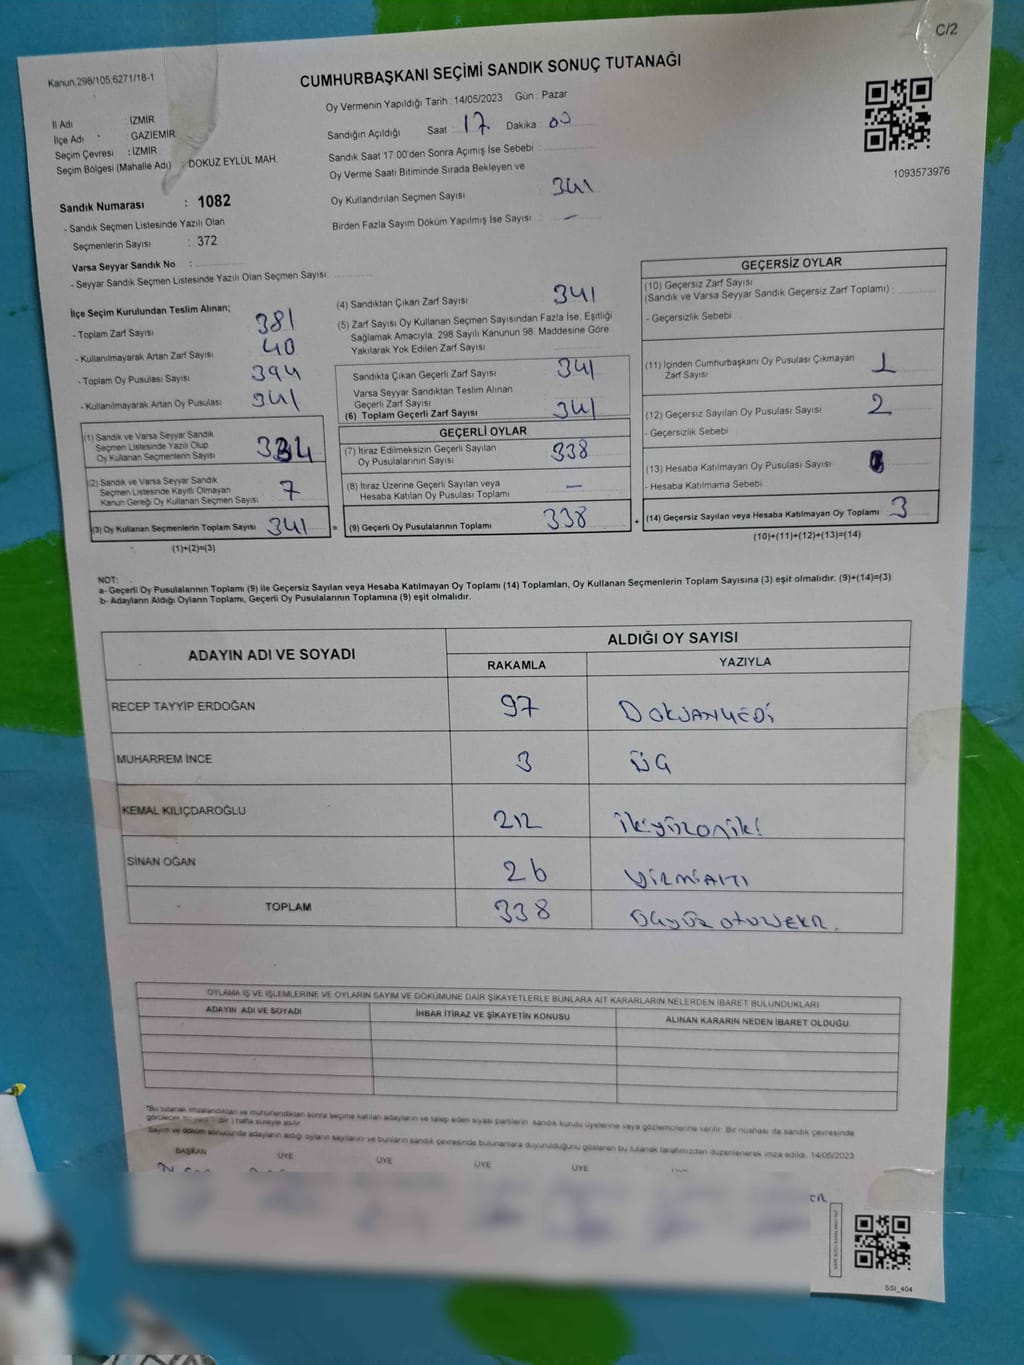 C/2
Kanun,298/105;6271/18-1
CUMHURBAŞKANI SEÇİMİ SANDIK SONUÇ TUTANAĞI
Oy Vermenin Yapıldığı Tarih : 14/05/2023 Gün : Pazar
İl Adı : İZMİR
İlçe Adı : GAZİEMİR
Seçim Çevresi : İZMİR
Seçim Bölgesi (Mahalle Adı) : DOKUZ EYLÜL MAH.
Sandığın Açıldığı Saat : 17 Dakika : 00
Sandık Saat 17:00'den Sonra Açımış İse Sebebi :
Oy Verme Saati Bitiminde Sırada Bekleyen ve
Oy Kullandırılan Seçmen Sayısı 341
Birden Fazla Sayım Döküm Yapılmış İse Sayısı : —
1093573976
Sandık Numarası : 1082
- Sandık Seçmen Listesinde Yazılı Olan
Seçmenlerin Sayısı : 372
Varsa Seyyar Sandık No :
- Seyyar Sandık Seçmen Listesinde Yazılı Olan Seçmen Sayısı :
İlçe Seçim Kurulundan Teslim Alınan;
- Toplam Zarf Sayısı 381
- Kullanılmayarak Artan Zarf Sayısı 40
- Toplam Oy Pusulası Sayısı 394
- Kullanılmayarak Artan Oy Pusulası 341
(1) Sandık ve Varsa Seyyar Sandık
Seçmen Listesinde Yazılı Olup
Oy Kullanan Seçmenlerin Sayısı 334
(2) Sandık ve Varsa Seyyar Sandık
Seçmen Listesinde Kayıtlı Olmayan
Kanun Gereği Oy Kullanan Seçmen Sayısı 7
(3) Oy Kullanan Seçmenlerin Toplam Sayısı 341
(1)+(2)=(3)
(4) Sandıktan Çıkan Zarf Sayısı 341
(5) Zarf Sayısı Oy Kullanan Seçmen Sayısından Fazla İse, Eşitliği
Sağlamak Amacıyla; 298 Sayılı Kanunun 98. Maddesine Göre
Yakılarak Yok Edilen Zarf Sayısı
Sandıkta Çıkan Geçerli Zarf Sayısı 341
Varsa Seyyar Sandıktan Teslim Alınan
Geçerli Zarf Sayısı
(6) Toplam Geçerli Zarf Sayısı 341
GEÇERLİ OYLAR
(7) İtiraz Edilmeksizin Geçerli Sayılan
Oy Pusulalarının Sayısı 338
(8) İtiraz Üzerine Geçerli Sayılan veya
Hesaba Katılan Oy Pusulası Toplamı —
= (9) Geçerli Oy Pusulalarının Toplamı 338
GEÇERSİZ OYLAR
(10) Geçersiz Zarf Sayısı
(Sandık ve Varsa Seyyar Sandık Geçersiz Zarf Toplamı) :
- Geçersizlik Sebebi
(11) İçinden Cumhurbaşkanı Oy Pusulası Çıkmayan
Zarf Sayısı 1
(12) Geçersiz Sayılan Oy Pusulası Sayısı 2
- Geçersizlik Sebebi
(13) Hesaba Katılmayan Oy Pusulası Sayısı
- Hesaba Katılmama Sebebi
+ (14) Geçersiz Sayılan veya Hesaba Katılmayan Oy Toplamı 3
(10)+(11)+(12)+(13)=(14)
NOT:
a- Geçerli Oy Pusulalarının Toplamı (9) ile Geçersiz Sayılan veya Hesaba Katılmayan Oy Toplamı (14) Toplamları, Oy Kullanan Seçmenlerin Toplam Sayısına (3) eşit olmalıdır. (9)+(14)=(3)
b- Adayların Aldığı Oyların Toplamı, Geçerli Oy Pusulalarının Toplamına (9) eşit olmalıdır.
ADAYIN ADI VE SOYADI ALDIĞI OY SAYISI
RAKAMLA YAZIYLA
RECEP TAYYİP ERDOĞAN 97 DOKSANYEDİ
MUHARREM İNCE 3 ÜÇ
KEMAL KILIÇDAROĞLU 212 ikiyüzoniki
SİNAN OĞAN 26 YİRMİALTI
TOPLAM 338 ÜÇYÜZ OTUZSEKİZ.
OYLAMA İŞ VE İŞLEMLERİNE VE OYLARIN SAYIM VE DÖKÜMÜNE DAİR ŞİKAYETLERLE BUNLARA AİT KARARLARIN NELERDEN İBARET BULUNDUKLARI
ADAYIN ADI VE SOYADI İHBAR İTİRAZ VE ŞİKAYETİN KONUSU ALINAN KARARIN NEDEN İBARET OLDUĞU
*Bu tutanak imzalandıktan ve mühürlendikten sonra seçime katılan adayların ve talep eden siyasi partilerin, sandık kurulu üyelerine veya gözlemcilerine verilir. Bir nüshası da sandık çevresinde
görülecek bir yere 1 (bir ) hafta süreyle asılır.
Sayım ve döküm sonucunda adayların aldığı oyların sayılarını ve bunların sandık çevresinde bulunanlara duyurulduğunu gösteren bu tutanak tarafımızdan düzenlenerek imza edildi. 14/05/2023
BAŞKAN ÜYE ÜYE ÜYE ÜYE
SSI_404